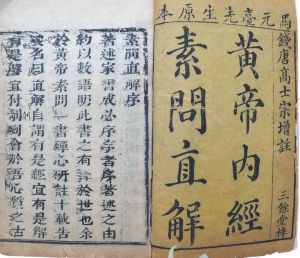 馬元臺先生原本
錢唐高士宗增註
黃帝內經
素問直解
三餘堂梓
素問直解序
著述家書成必序序者序著述之由
約以數語明此書之有裨於世也余
於黃帝素問一書經心研註十載告
竣名曰直解自謂有是經宜有是解
有是解宜付剞劂會於吾心質之古